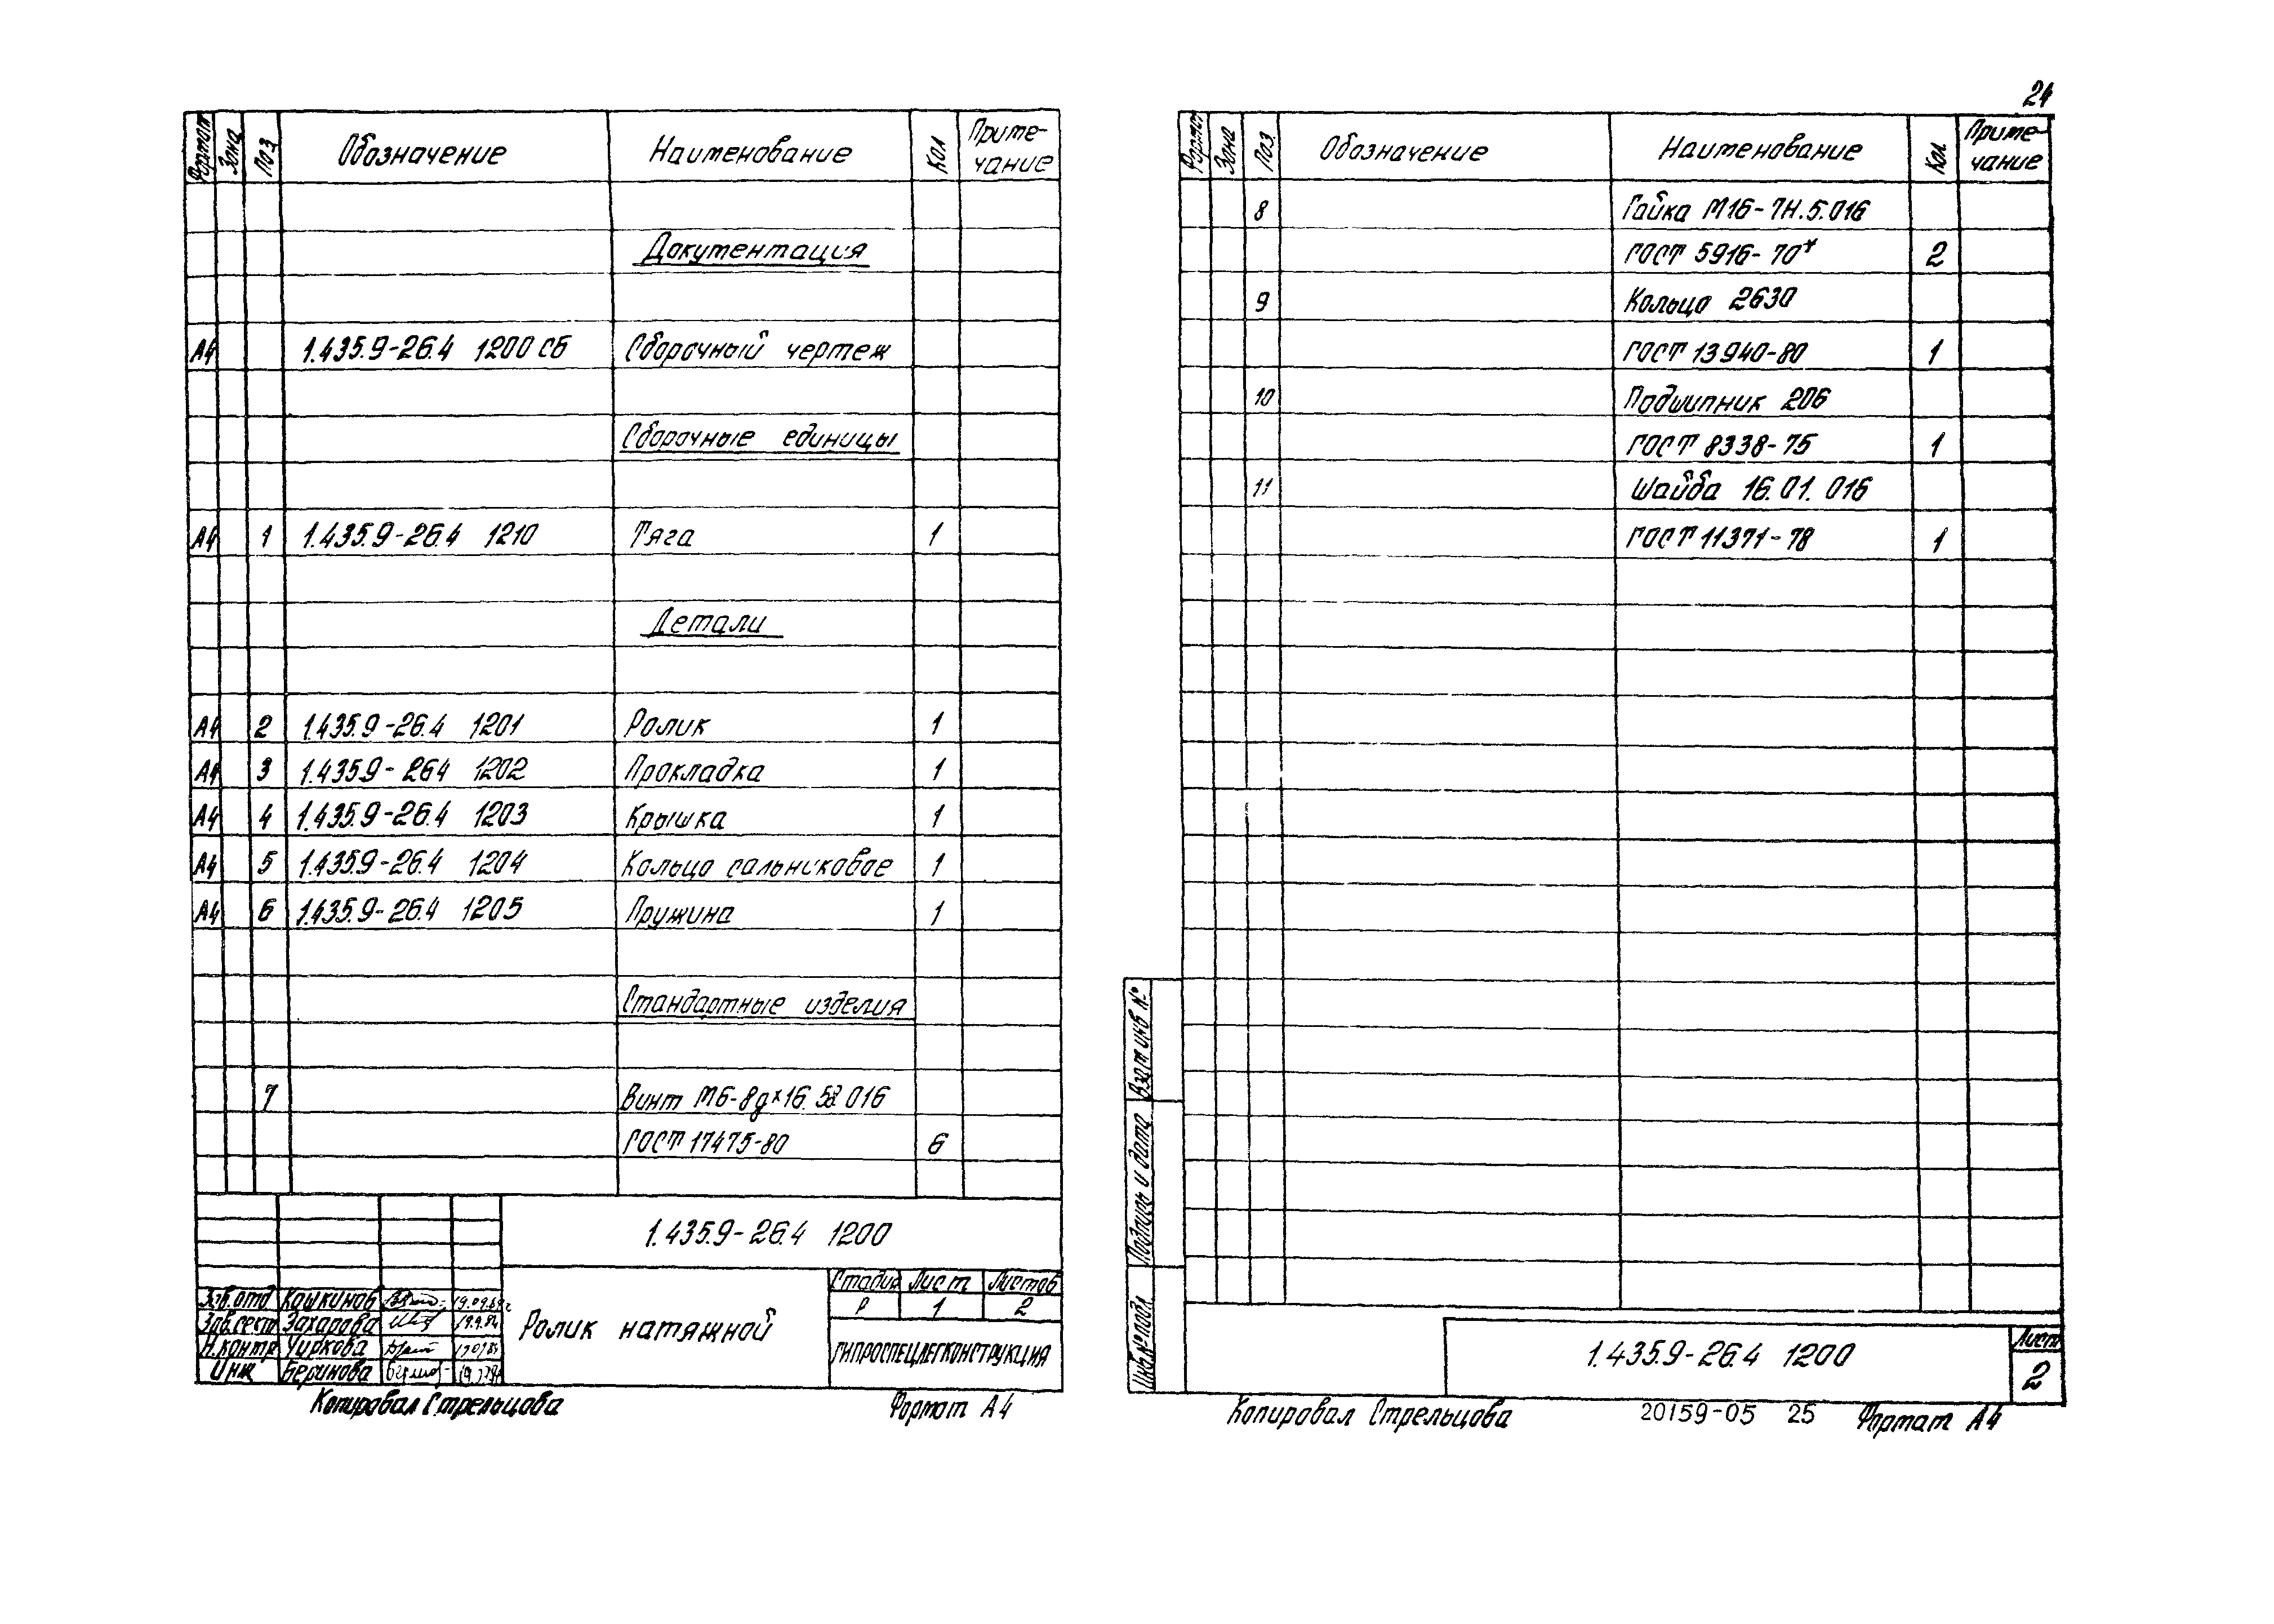 24
Формат Зона Поз Обозначение Наименование Кол Приме-
чание
Документация
А4 1.435.9-26.4 1200 СБ Сборочный чертеж
Сборочные единицы
А4 1 1.435.9-26.4 1210 Тяга 1
Детали
А4 2 1.435.9-26.4 1201 Ролик 1
А4 3 1.435.9-26.4 1202 Прокладка 1
А4 4 1.435.9-26.4 1203 Крышка 1
А4 5 1.435.9-26.4 1204 Кольцо сальниковое 1
А4 6 1.435.9-26.4 1205 Пружина 1
Стандартные изделия
7 Винт М6-8g×16.58.016
ГОСТ 17475-80 6
1.435.9-26.4 1200
Зав.отд Кашкинов 19.09.84г
Зав.сект Захарова 19.9.84
Н.контр Чиркова
Инж
Ролик натяжной
Стадия Лист Листов
Р 1 2
ГИПРОСПЕЦЛЕГКОНСТРУКЦИЯ
Копировал Стрельцова Формат А4
Формат Зона Поз Обозначение Наименование Кол. Приме-
чание
8 Гайка М16-7Н.5.016
ГОСТ 5916-70* 2
9 Кольцо 2630
ГОСТ 13940-80 1
10 Подшипник 206
ГОСТ 8338-75 1
11 Шайба 16.01.016
ГОСТ 11371-78 1
Взам инв №
Подпись и дата
Инв.№ подл.
1.435.9-26.4 1200
Лист
2
Копировал Стрельцова 20159-05 25 Формат А4